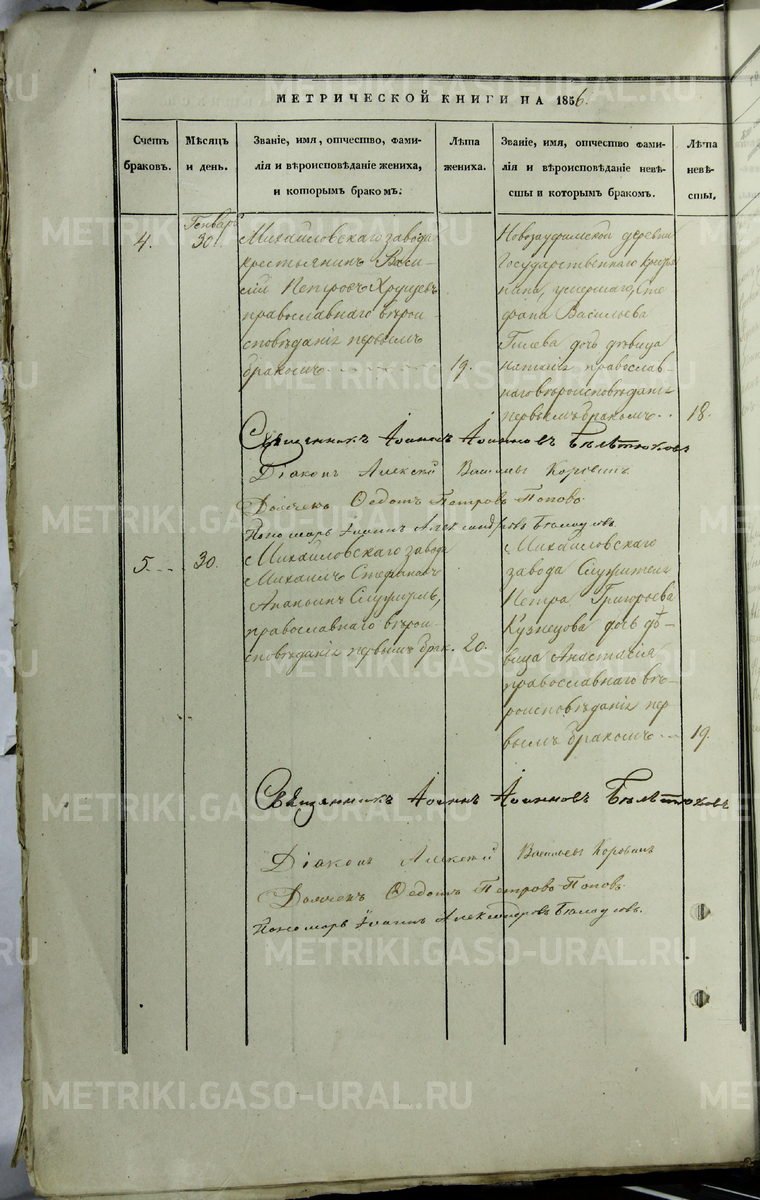 МЕТРИЧЕСКОЙ КНИГИ НА 1856.
Счетъ браковъ.
Мѣсяцъ и день.
Званіе, имя, отчество, фами-
лія и вѣроисповѣданіе жениха,
и которымъ бракомъ.
Лѣта
жениха.
Званіе, имя, отчество фами-
лія и вѣроисповѣданіе невѣ-
сты и которымъ бракомъ.
Лѣта
невѣ-
сты.
4.
Генварь
30.
Михаиловскаго завода
крестьянинъ Васи-
лій Петровъ Хрущевъ
православнаго вѣрои-
сповѣданія первымъ
бракомъ
19.
Новозауфимской деревни
Государственнаго крестья
нина, умершаго, Сте
фана Васильева
Гилева дочь дѣвица
православ-
наго вѣроисповѣданія
первымъ бракомъ
18.
Священникъ Іоаннъ Іоанновъ Бѣлѣтюковъ
Діаконъ Алексій Васильевъ Коровинъ
Дьячекъ Федотъ Петровъ Поповъ
Пономарь Іоаннъ Александровъ
5.
30.
Михаиловскаго завода
Михаилъ Стефановъ
Ананьинъ
православнаго вѣрои-
сповѣданія первымъ брак.
20.
Михаиловскаго
завода Служителя
Петра Григорьева
Кузнецова дочь дѣ-
вица Анастасія
православнаго вѣ-
роисповѣданія пер
вымъ бракомъ
19.
Священникъ Іоаннъ Іоанновъ Бѣлѣтюковъ
Діаконъ Алексій Васильевъ Коровинъ
Дьячекъ Федотъ Петровъ Поповъ
Пономарь Іоаннъ Александровъ
METRIKI.GASO-URAL.RU